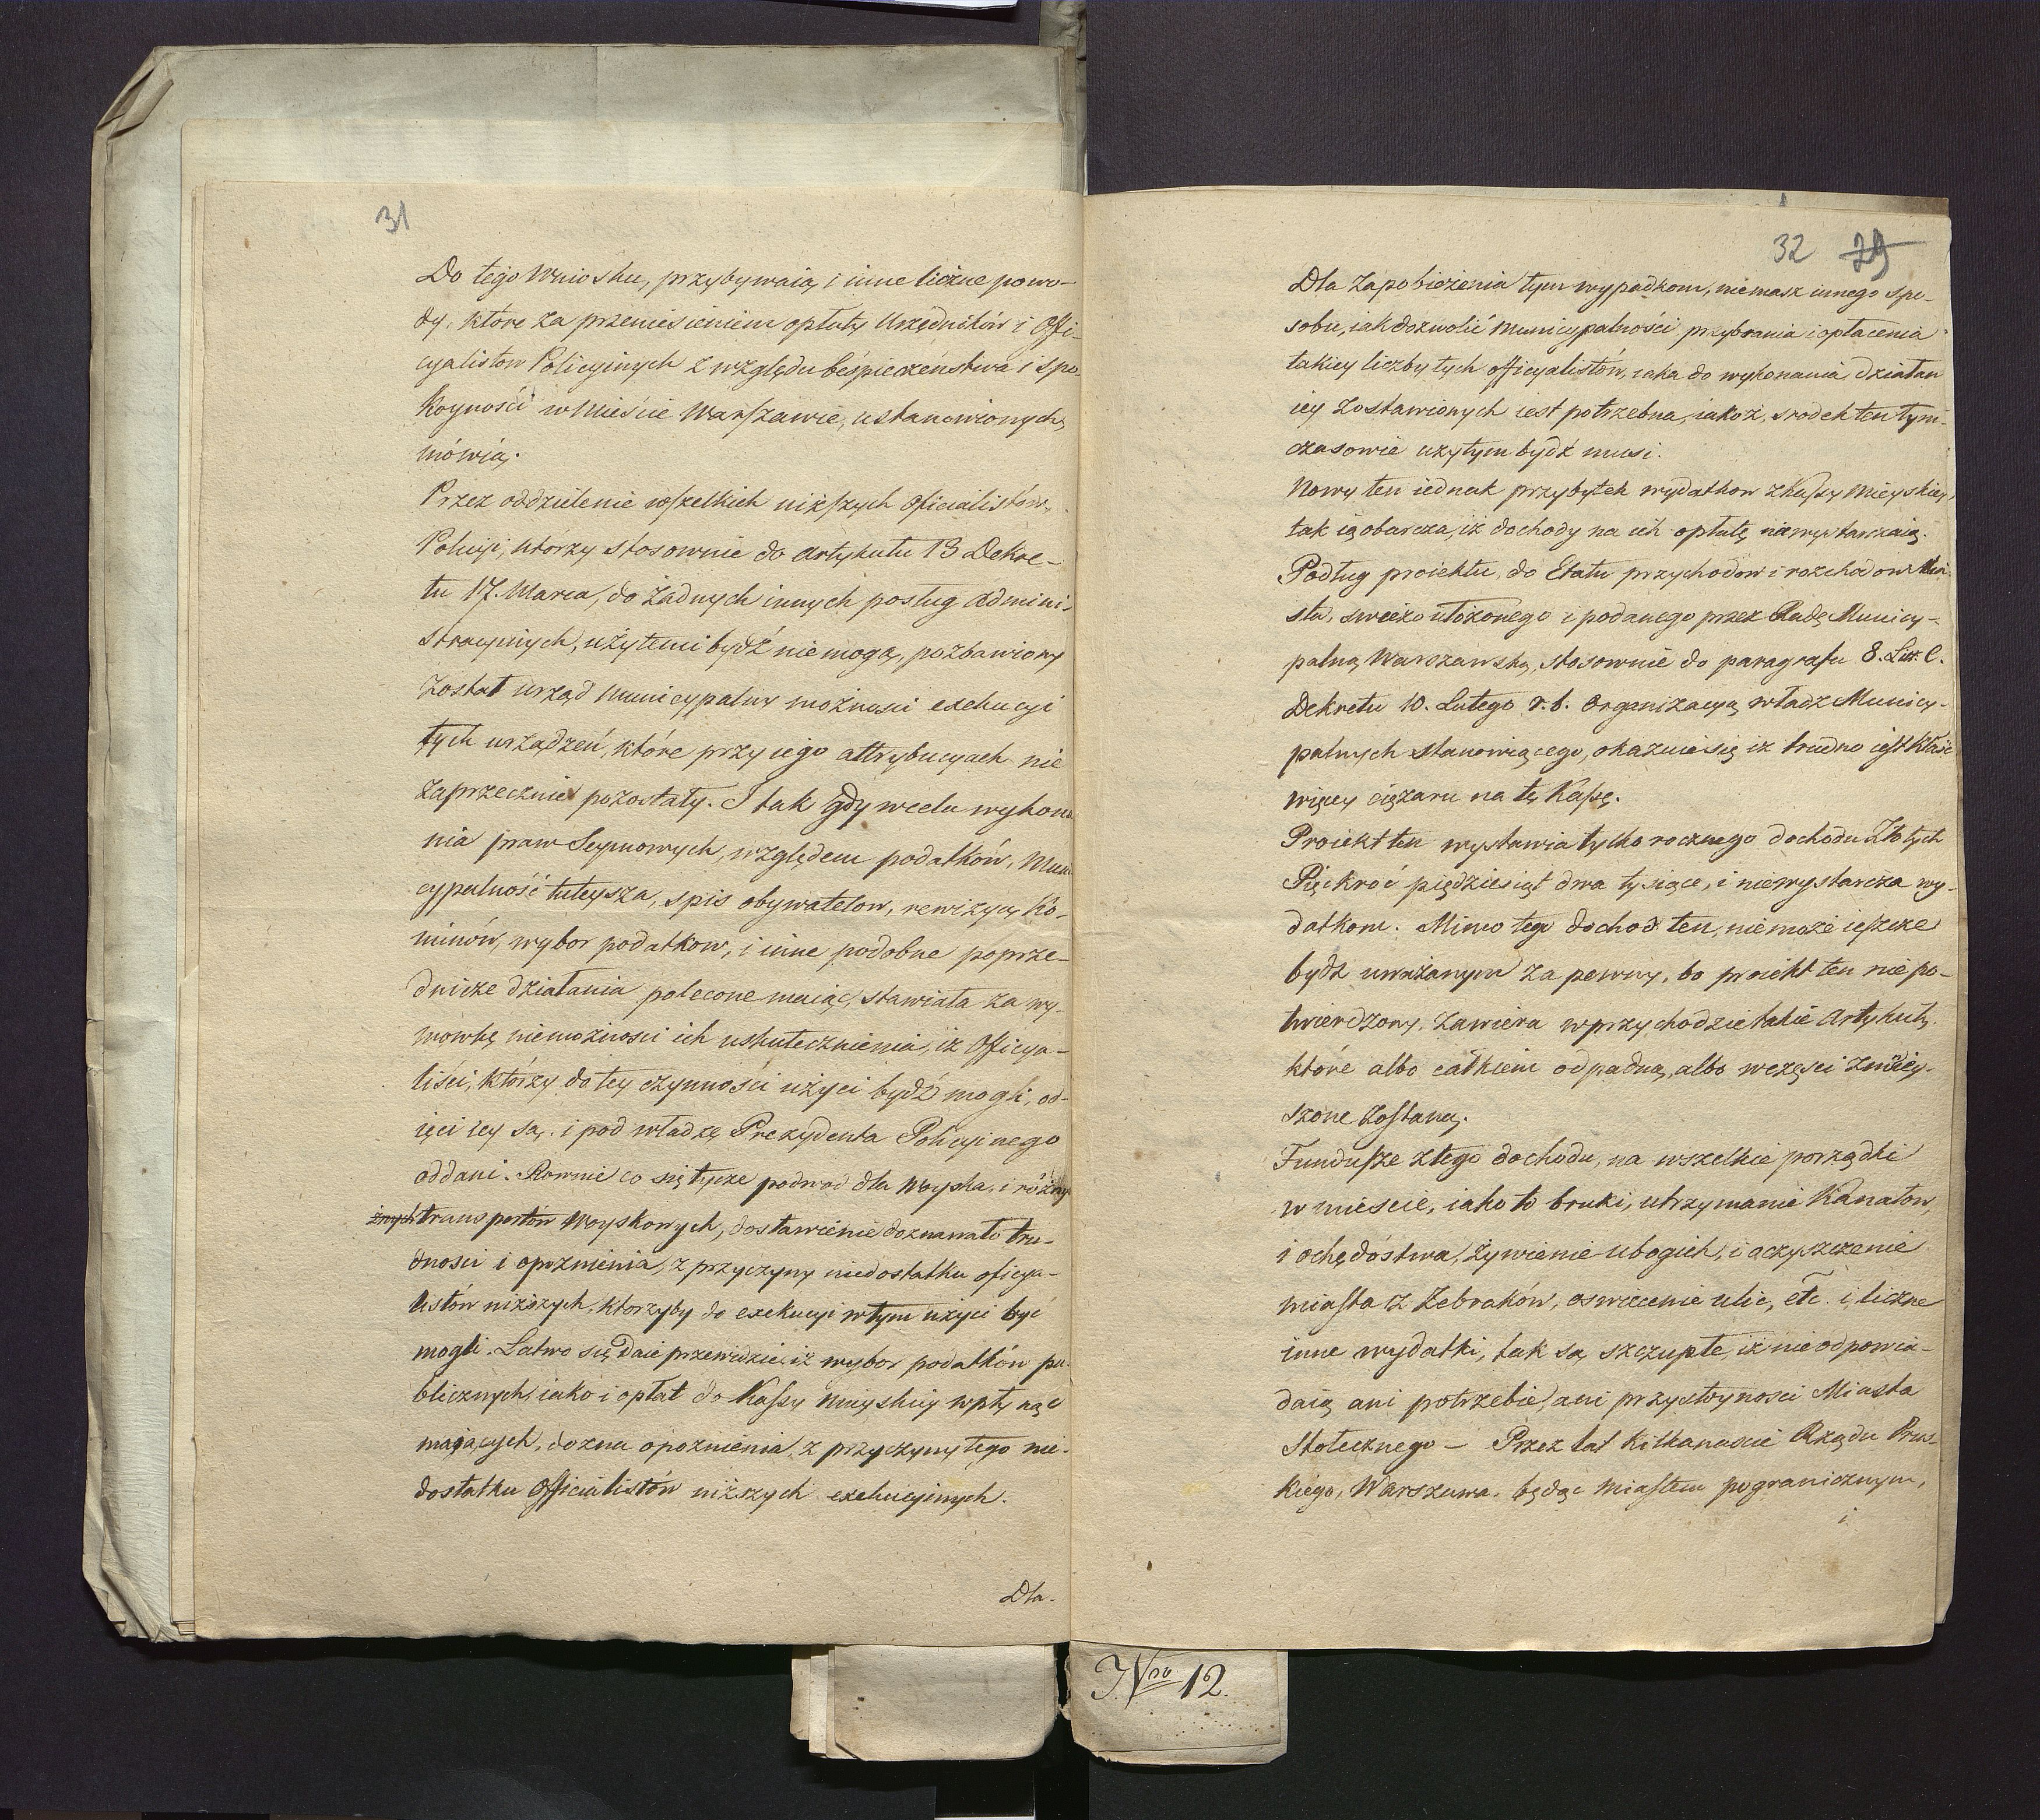 31
Do tego Wniosku, przybywaią i inne liczne powo-
dy, które za przeniesieniem opłaty Urzędników i Offi-
cyalistow Policyinych z względu bespieczeństwa i spo-
koyności w Mieście Warszawie, ustanowionych,
mówią.
Przez oddzielenie wszelkich niższych Oficialistów
Policyi, którzy stosownie do Artykułu 13 Dekre-
tu 17. Marca, do żadnych innych posług Admini-
stracyinych, użytemi bydź nie mogą, pozbawiony
został urząd Municypalny możnosci exekucyi
tych urządzeń, które przy iego attrybucyach nie
zaprzecznie pozostały. I tak gdy w celu wykona-
nia praw Seymowych, względem podatków, Muni-
cypalność tuteysza, spis obywatelow, rewizyą Ko-
minów, wybor podatkow, i inne podobne poprze-
dnicze działania polecone maiąc, stawiała za wy-
mowkę niemożnosci ich uskutecznienia, iż Officya-
liści, którzy do tey czynności użyci bydź mogli, od-
ięci iey są, i pod władzę Prezydenta Policyinego
oddani. Rownie co się tycze podwod dla Woyska, i różny
żnych transportów Woyskowych, dostawienie doznawało tru-
dnosci i opoznienia, z przyczyny niedostatku oficya-
listów niższych, ktorzyby do exekucyi w tym użyci być
mogli. Łatwo się daie przewidzieć iż wybor podatków pu-
blicznych iako i opłat do Kassy mieyskiej wpłynąć
maiących, dozna opoznienia, z przyczyny tego nie-
dostatku Officialistów niższych exekucyinych.
Dla.
32 29
Dla Zapobieżenia tym wypadkom, niemasz innego spo-
sobu, iak dozwolić Municypalności przybrania i opłacenia
takiey liczby tych officyalistów, iaka do wykonania działan
iey zostawionych iest potrzebna, iakoż, srodek ten tym-
czasowie użytym bydź musi.
Nowy ten iednak przybytek wydatkow z Kassy Mieyskiey,
tak ią obarcza, iż dochody na ich opłatę niewystarczaią.
Podług proiektu, do Etatu przychodow i rozchodow Mia-
sta, swieżo ułożonego i podanego przez Radę Municy-
palną Warszawską, stosownie do paragrafu 8. Litt. C.
Dekretu 10. Lutego r. b. Organizacyą władz Municy-
palnych stanowiącego, okazuie się iż trudno iest kłaść
więcey ciężaru na tę Kassę.
Proiekt ten wystawia tylko rocznego dochodu Złotych
Pięćkroć pięćdziesiąt dwa tysiące, i niewystarcza wy-
datkom. Mimo tego dochod ten, nie może ieszcze
bydź uważanym za pewny, bo proiekt ten nie po-
twierdzony, zawiera w przychodzie takie Artykuły,
które albo całkiem odpadną, albo w części zmniey-
szone zostaną.
Fundusze z tego dochodu, na wszelkie porządki
w mieście, iako to bruki, utrzymanie Kanałow,
i ochędóstwa, żywienie ubogich, i oczyszczenie
miasta z Żebraków, oswiecenie ulic, etc. i liczne
inne wydatki, tak są szczupłe iż nie odpowia-
daią ani potrzebie, ani przystoyności Miasta
Stołecznego — Przez lat kilkanascie Rządu Prus-
kiego, Warszawa, będąc Miastem pogranicznym,
i
Nro 12.